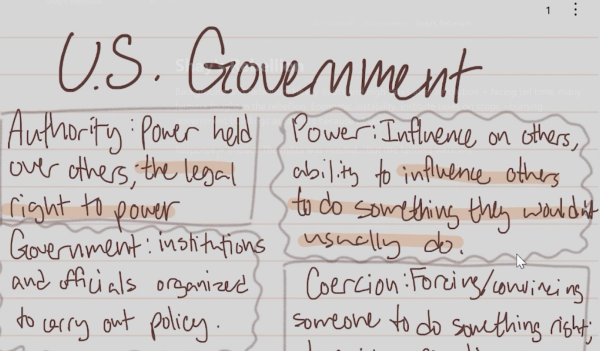 1
U.S. Government
Authority: Power held
over others, the legal
right to power
Power: Influence on others,
ability to influence others
to do something they wouldn't
usually do.
Government: institutions
and officials organized
to carry out policy.
Coercion: Forcing/convincing
someone to do something right,